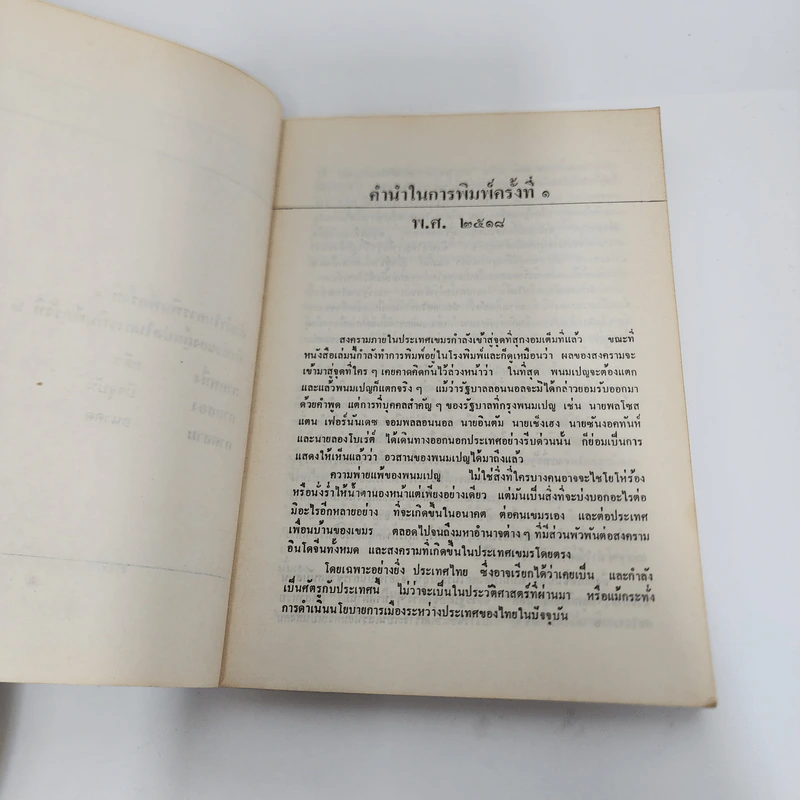 คำนำในการพิมพ์ครั้งที่ ๑
พ.ศ. ๒๕๑๘
สงครามภายในประเทศเขมรกำลังเข้าสู่จุดที่สุกงอมเต็มที่แล้ว ขณะที่
หนังสือเล่มนี้กำลังทำการพิมพ์อยู่ในโรงพิมพ์และก็ดูเหมือนว่า ผลของสงครามจะ
เข้ามาสู่จุดที่ใคร ๆ เคยคาดคิดกันไว้ล่วงหน้าว่า ในที่สุด พนมเปญจะต้องแตก
และแล้วพนมเปญก็แตกจริง ๆ แม้ว่ารัฐบาลลอนนอลจะมิได้กล่าวยอมรับออกมา
ด้วยคำพูด แต่การที่บุคคลสำคัญ ๆ ของรัฐบาลที่กรุงพนมเปญ เช่น นายพลโซส
แตน เฟอร์นันเดซ จอมพลลอนนอล นายอินตัม นายเช็งเฮง นายซันงอคทันห์
และนายลองโบเร่ต์ ได้เดินทางออกนอกประเทศอย่างรีบด่วนนั้น ก็ย่อมเป็นการ
แสดงให้เห็นแล้วว่า อวสานของพนมเปญได้มาถึงแล้ว
ความพ่ายแพ้ของพนมเปญ ไม่ใช่สิ่งที่ใครบางคนอาจจะไชโยโห่ร้อง
หรือนั่งร่ำไห้น้ำตานองหน้าแต่เพียงอย่างเดียว แต่มันเป็นสิ่งที่จะบ่งบอกอะไรต่อ
มิอะไรอีกหลายอย่าง ที่จะเกิดขึ้นในอนาคต ต่อคนเขมรเอง และต่อประเทศ
เพื่อนบ้านของเขมร ตลอดไปจนถึงมหาอำนาจต่าง ๆ ที่มีส่วนพัวพันต่อสงคราม
อินโดจีนทั้งหมด และสงครามที่เกิดขึ้นในประเทศเขมรโดยตรง
โดยเฉพาะอย่างยิ่ง ประเทศไทย ซึ่งอาจเรียกได้ว่าเคยเป็น และกำลัง
เป็นศัตรูกับประเทศนี้ ไม่ว่าจะเป็นในประวัติศาสตร์ที่ผ่านมา หรือแม้กระทั่ง
การดำเนินนโยบายการเมืองระหว่างประเทศของไทยในปัจจุบัน